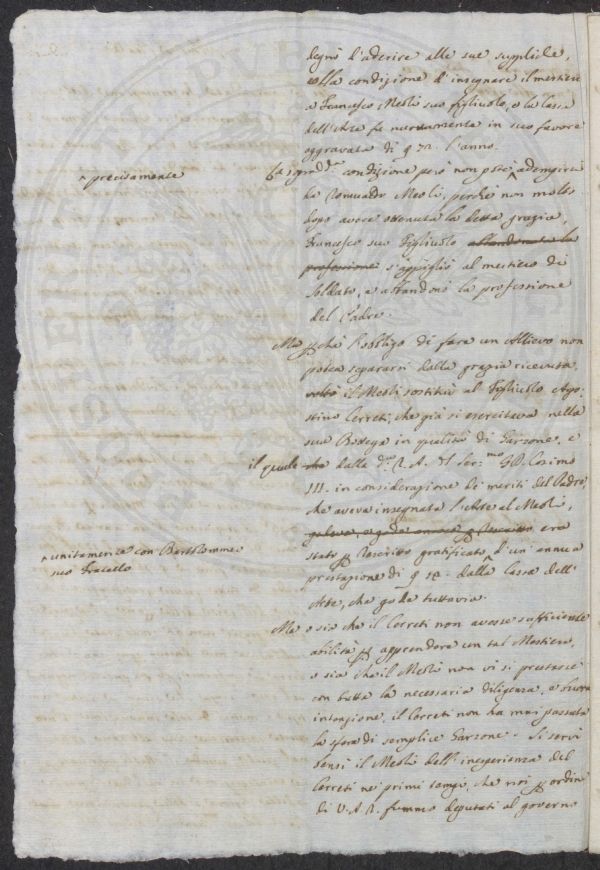 degnò d'aderire alle sue suppliche,
colla condizione d'insegnare il mestiere
a Francesco Meoli suo figliuolo, e la Cassa
dell'Arte fu nuovamente in suo favore
aggravata di 72. l'anno.
^ precisamente
condizione però non potè ^ adempirsi
da Romualdo Meoli, perchè non molto
dopo avere ottenuta la detta grazia,
Francesco suo Figliuolo abbandonata la
professione s'appigliò al mestiero di
Soldato, e abbandonò la professione
del Padre.
Ma perchè l'obbligo di fare un Allievo non
potea separarsi dalla grazia ricevuta,
il Meoli sostituì al Figliuolo Ago-
stino Cerreti, che già si esercitava nella
sua Bottega in qualità di Garzone, e
il quale che dalla R. A. del Ser.mo G.D. Cosimo
III. in considerazione dei meriti del Padre,
che aveva insegnata l'Arte al Meoli,
era
^ unitamente con Bartolommeo
suo Fratello
stato per Rescritto gratificato, d'un'annua
prestazione di 12. dalla Cassa dell'
Arte, che gode tuttavia.
Ma o sia che il Cerreti non avesse sufficiente
abilità per apprendere un tal Mestiero,
o sia che il Meoli non vi si prestasse
con tutta la necessaria diligenza, e buona
intenzione, il Cerreti non ha mai passata
la sfera di semplice Garzone. Si servì
bensì il Meoli dell'inesperienza del
Cerreti nei primi tempi, che noi per ordine
di V. A. R. fummo deputati al governo